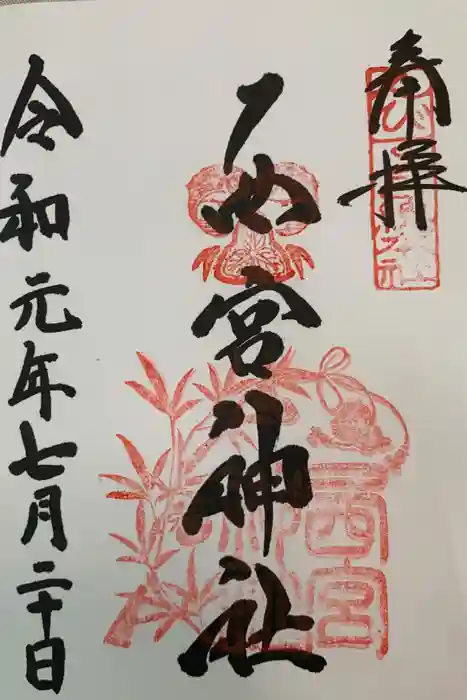 奉拝
西宮神社
西宮
神社
令和元年七月二十日